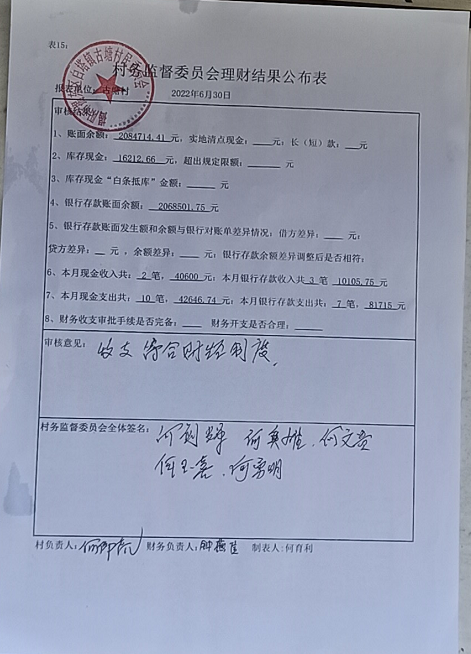 表15:
村务监督委员会理财结果公布表
报表单位: 古塘村 2022年6月30日
白塔镇古塘村民委员会
审核结
1、账面余额: 2084714.41 元, 实地清点现金: ____元; 长(短)款: __元
2、库存现金: 16212.66 元, 超出规定限额: ______ 元
3、库存现金“白条抵库”金额: _____ 元
4、银行存款账面余额: 2068501.75 元
5、银行存款账面发生额和余额与银行对账单差异情况: 借方差异: ___ 元;
贷方差异: __ 元, 余额差异: ___ 元; 银行存款余额差异调整后是否相符;
6、本月现金收入共: 2 笔, 40600 元; 本月银行存款收入共 3 笔 10105.75元
7、本月现金支出共: 10 笔, 42646.74 元; 本月银行存款支出共: 7 笔, 81715 元
8、财务收支审批手续是否完备: ___ 财务开支是否合理: ____
审核意见: 收支符合财经制度,
村务监督委员会全体签名:
村负责人: 财务负责人: 制表人: 何育利